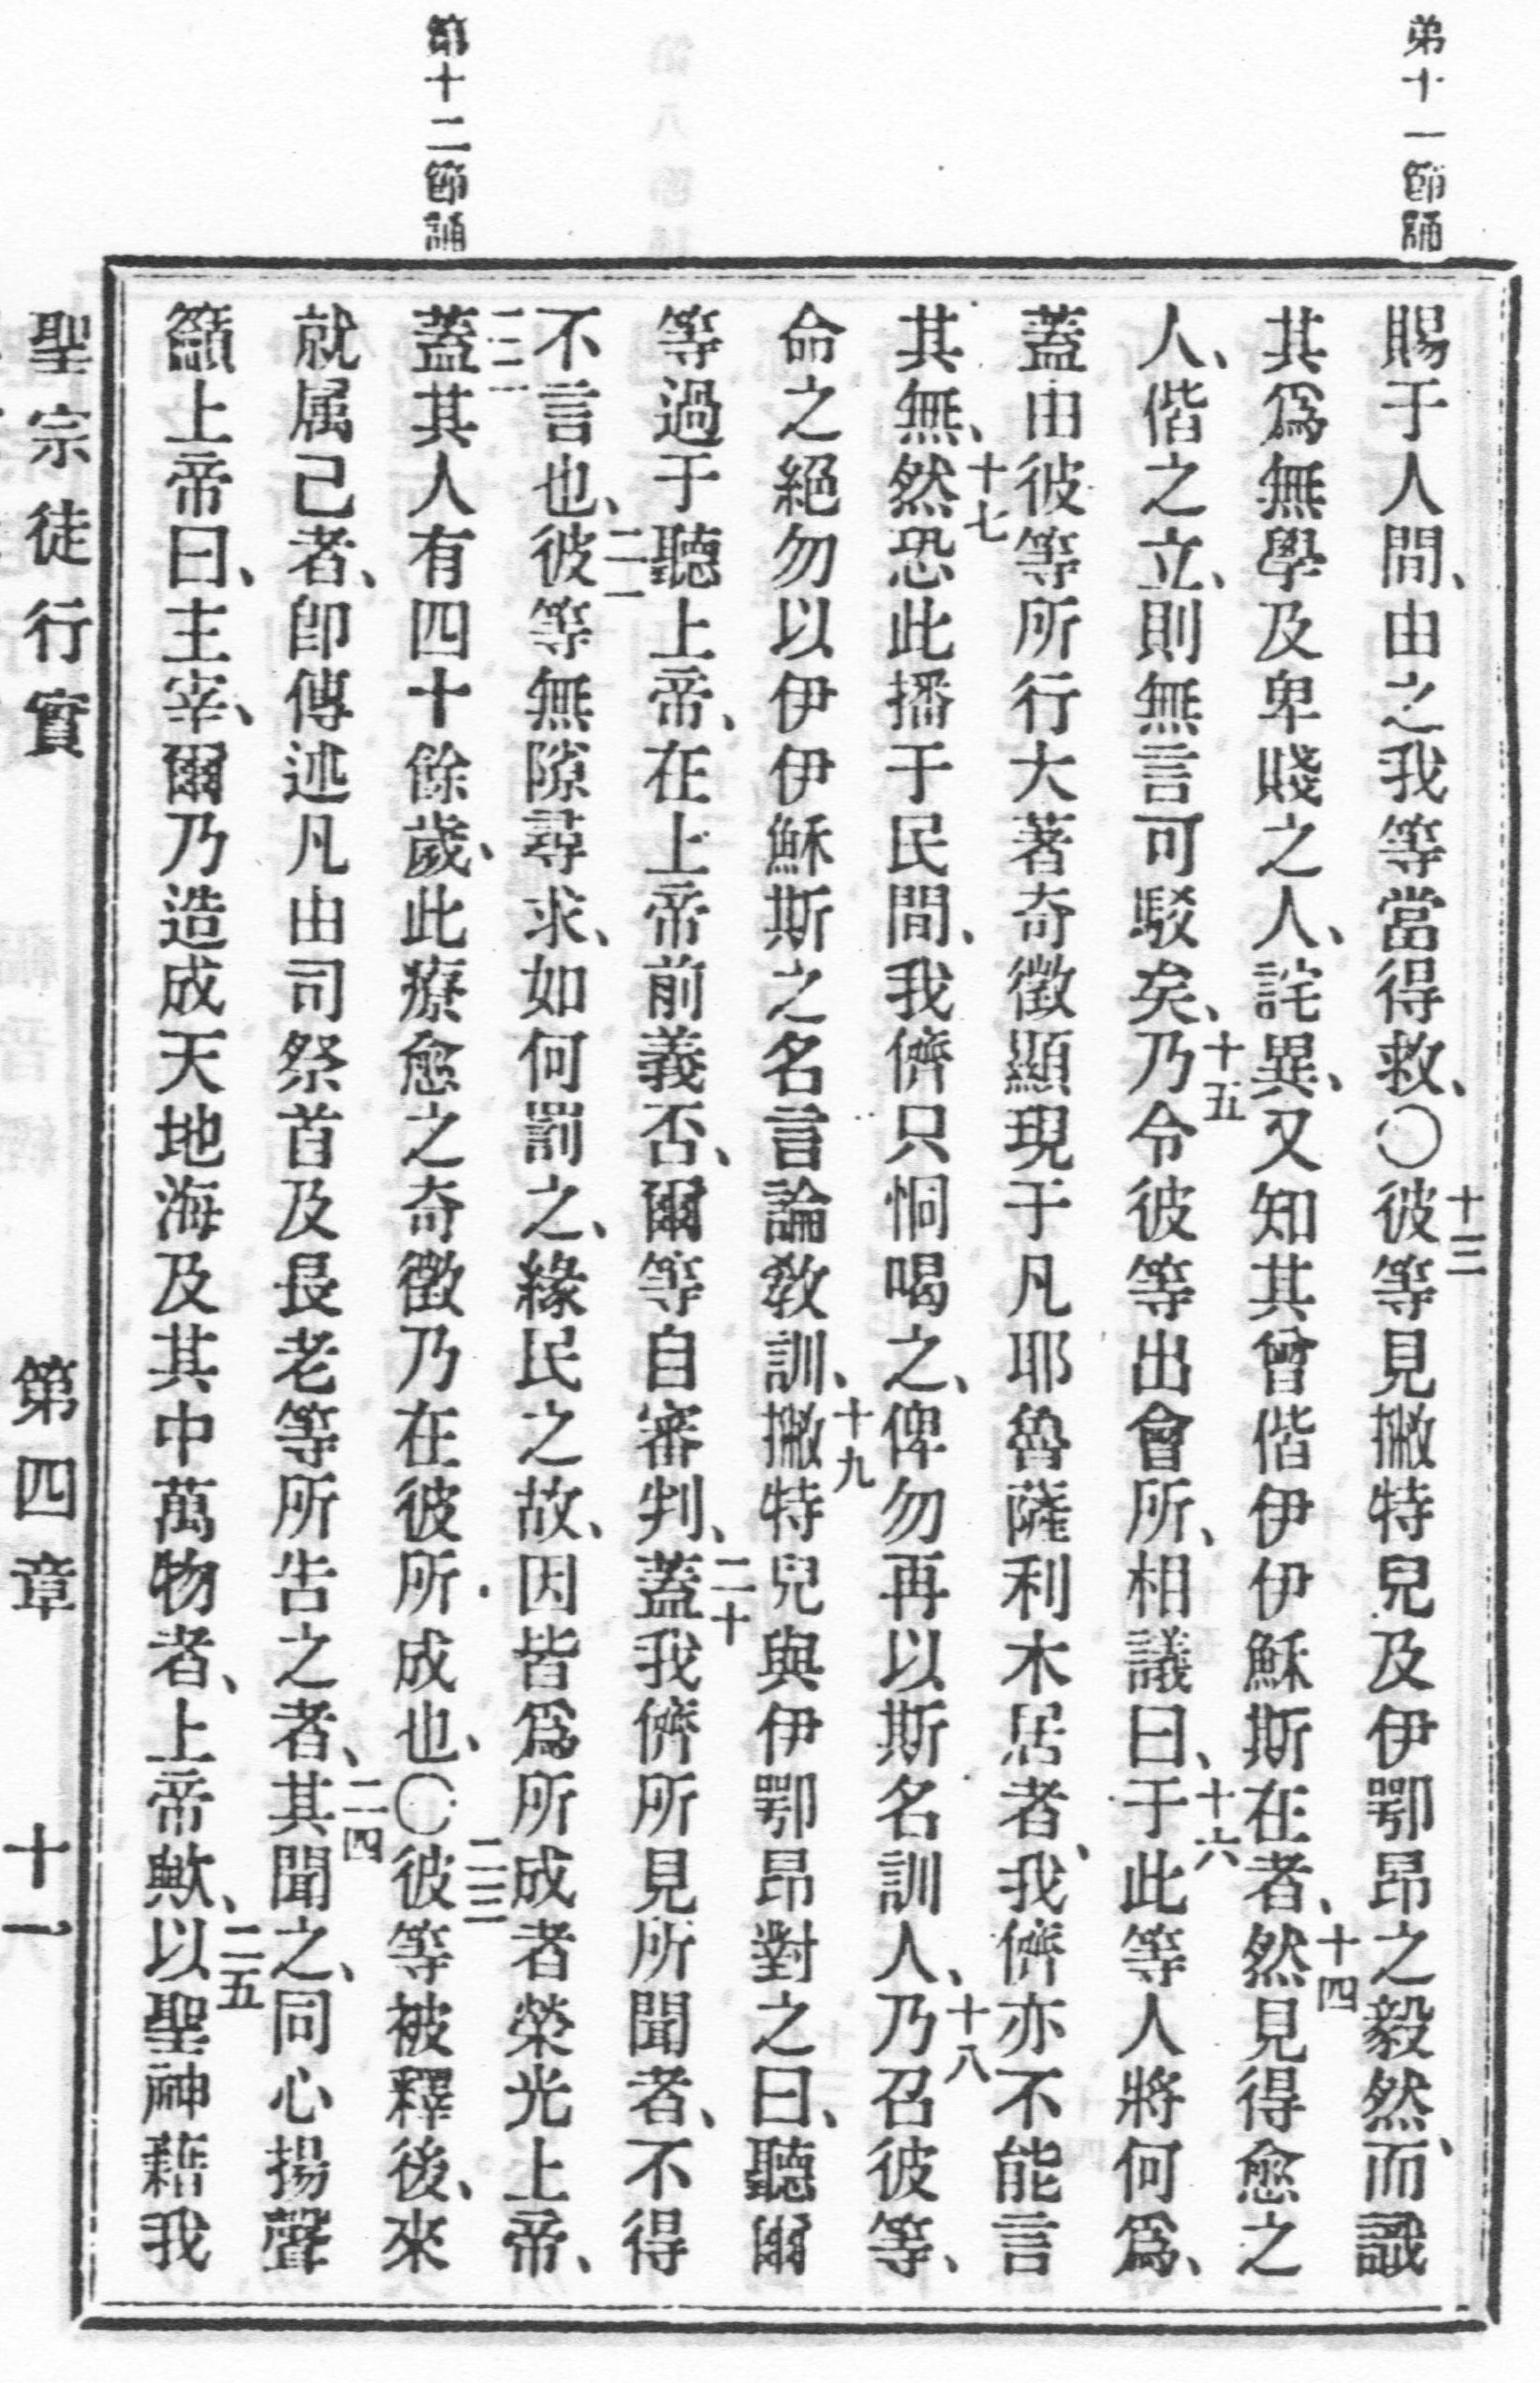 弟十一節誦
第十二節誦
賜于人間、由之我等當得救、〇十三彼等見撇特兒及伊鄂昂之毅然、而識
其爲無學及卑賤之人、詫異、又知其曾偕伊伊穌斯在者、十四然見得愈之
人、偕之立、則無言可駁矣、十五乃令彼等出會所、相議曰、十六于此等人將何爲、
蓋由彼等所行大著奇徵顯現于凡耶魯薩利木居者、我儕亦不能言
其無、十七然恐此播于民間、我儕只恫喝之、俾勿再以斯名訓人、十八乃召彼等、
命之絕勿以伊伊穌斯之名言論敎訓、十九撇特兒與伊鄂昂對之曰、聽爾
等過于聽上帝、在上帝前義否、爾等自審判、二十蓋我儕所見所聞者、不得
不言也、二一彼等無隙尋求、如何罰之、緣民之故、因皆爲所成者榮光上帝、
二二蓋其人有四十餘歲、此療愈之奇徵乃在彼所成也、〇二三彼等被釋後、來
就属己者、卽傳述凡由司祭首及長老等所吿之者、二四其聞之、同心揚聲
籲上帝曰、主宰、爾乃造成天地海及其中萬物者、上帝歟、二五以聖神藉我
聖宗徒行實 第四章 十一